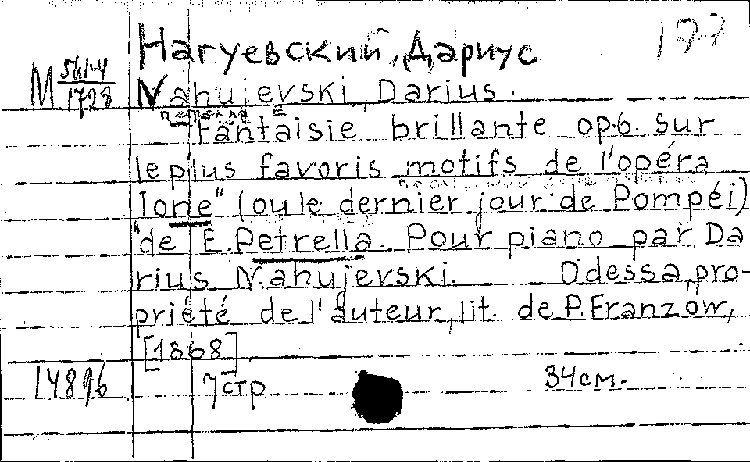 Нагуевский, Дариус 197
M 561-4/1728
Nahujevski, Darius.
Fantaisie brillante op.6. sur
le plus favoris motifs de l'opéra
"Ione" (ou le dernier jour de Pompéi)
de E. Petrella. Pour piano par Da
rius Nahujevski. Odessa, pro-
priété de l'auteur, lit. de P. Franzow,
[1868]
14896 7 стр 34 см.